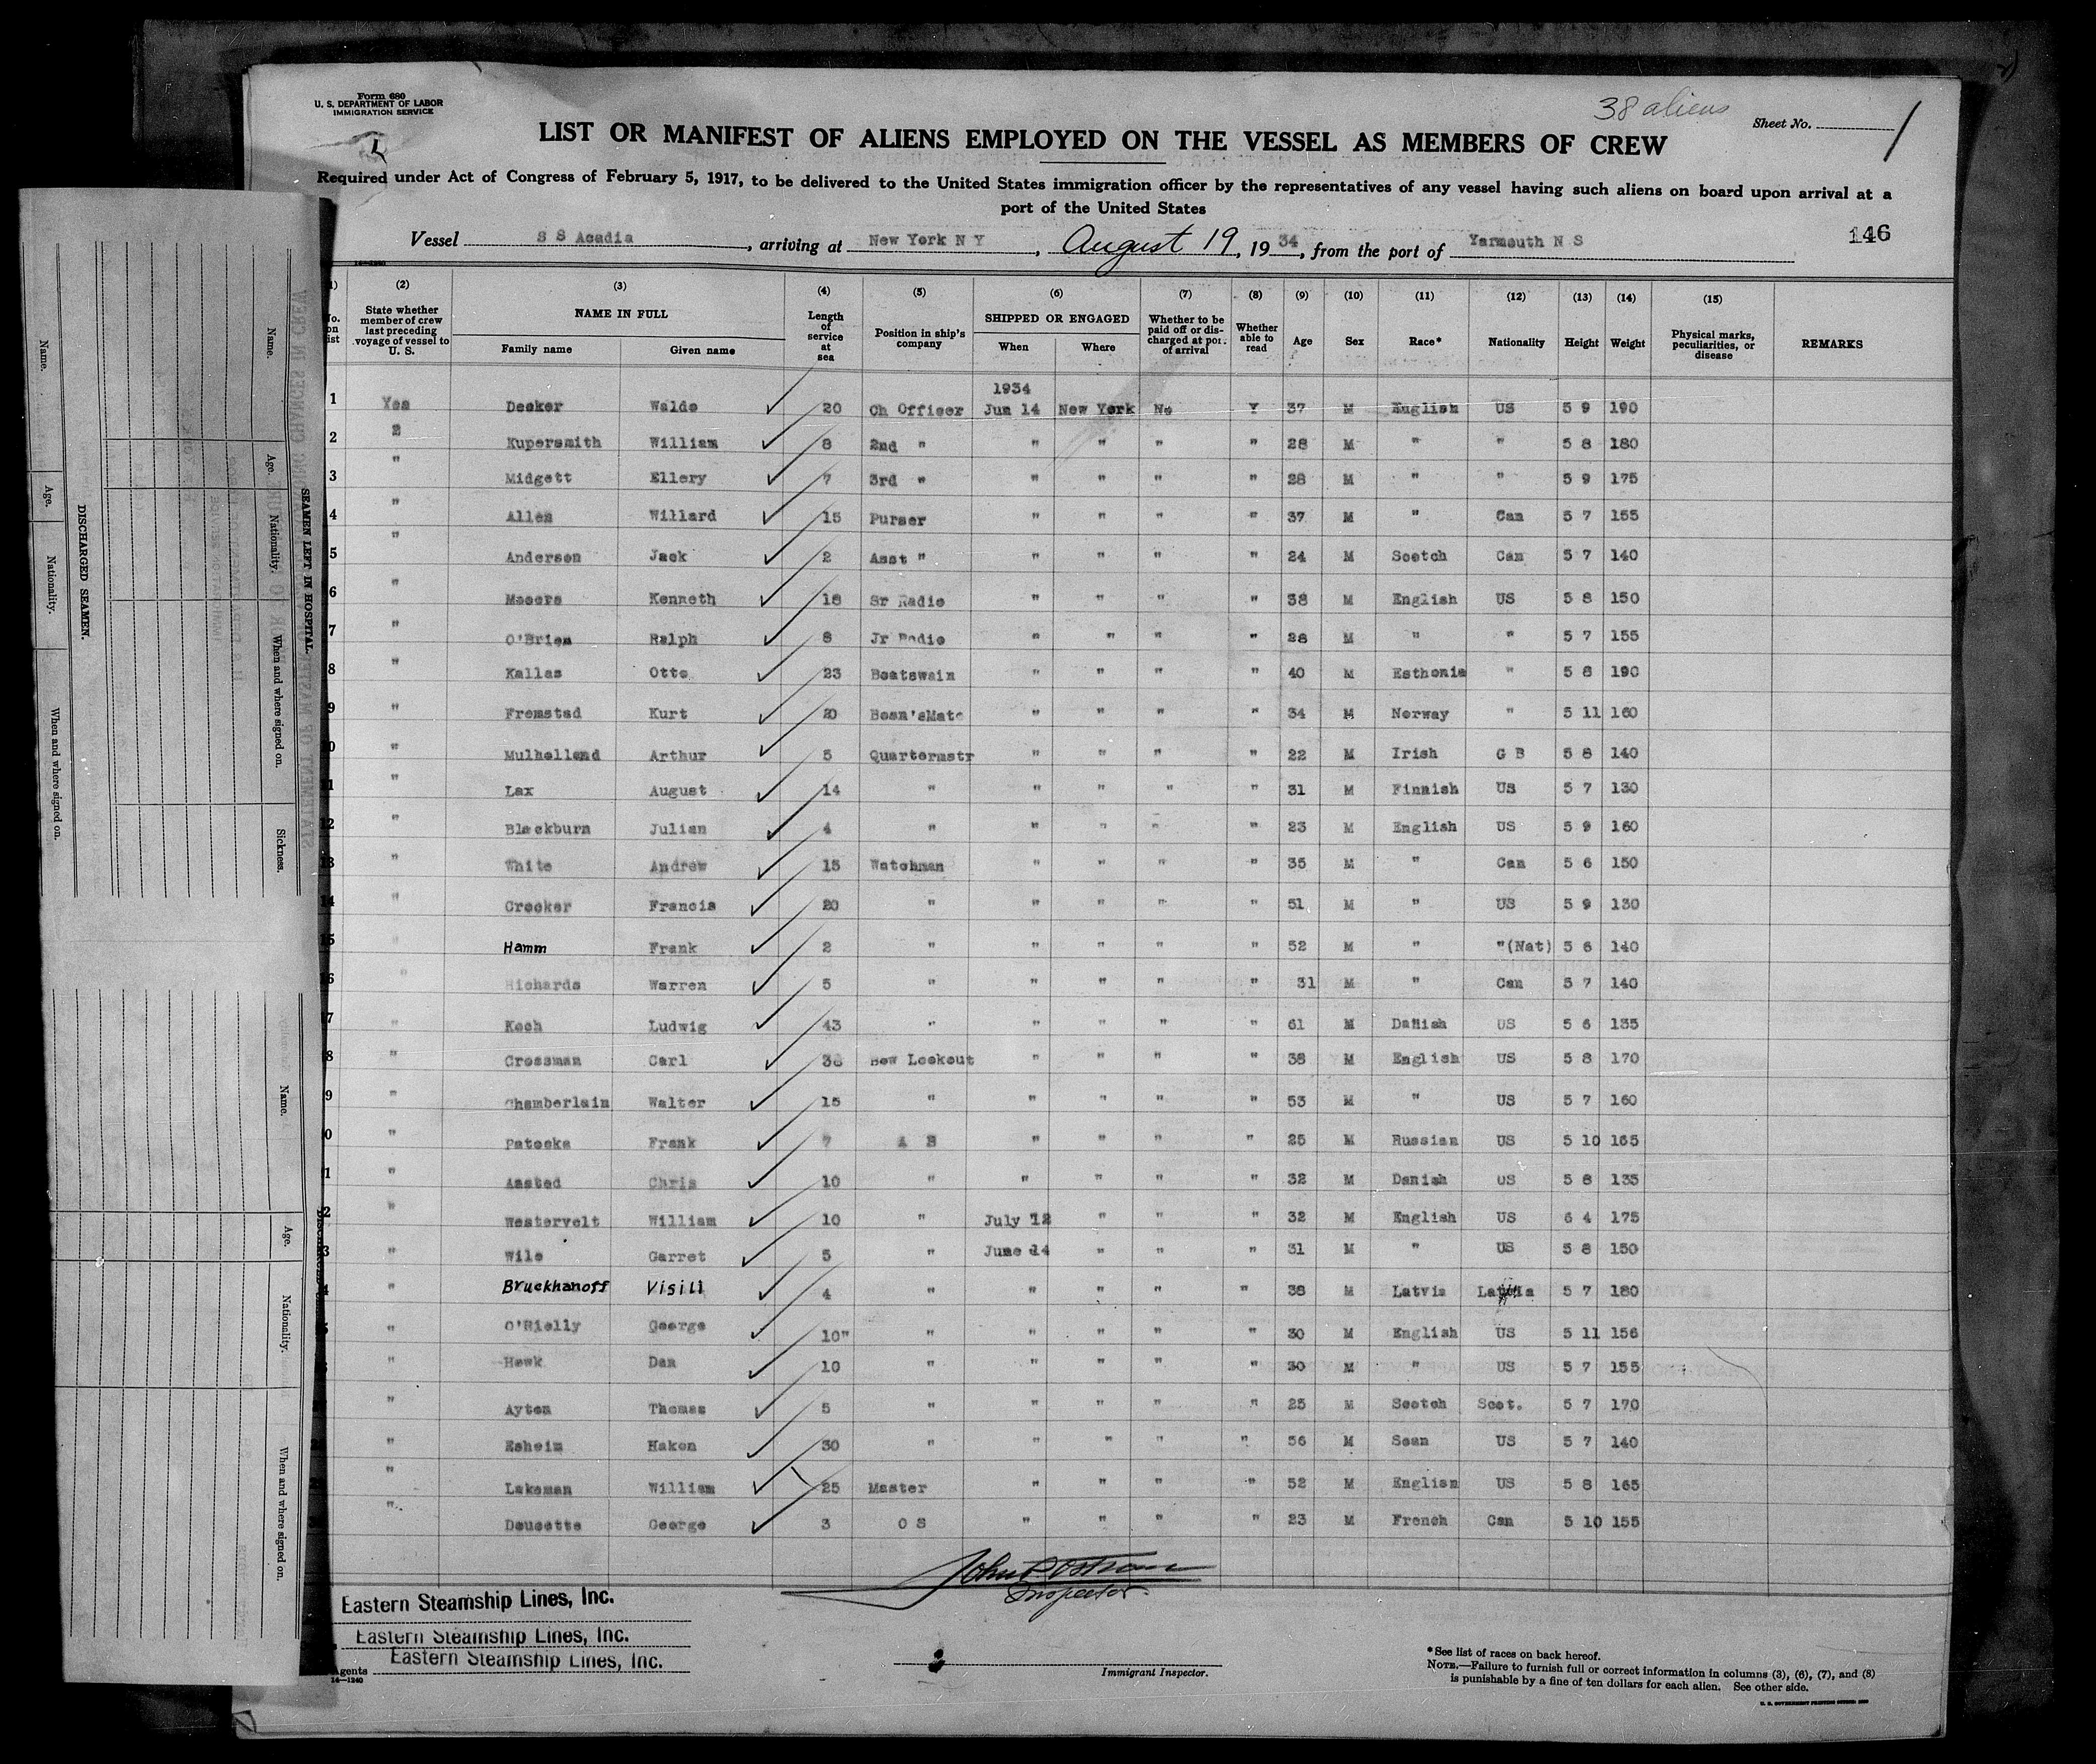 Form 680
U. S. DEPARTMENT OF LABOR
IMMIGRATION SERVICE
1
38 aliens
Sheet No. 1
LIST OR MANIFEST OF ALIENS EMPLOYED ON THE VESSEL AS MEMBERS OF CREW
Required under Act of Congress of February 5, 1917, to be delivered to the United States immigration officer by the representatives of any vessel having such aliens on board upon arrival at a
port of the United States
Vessel S S Acadia, arriving at New York N Y, August 19, 1934, from the port of Yarmouth N S
146
(2) (3) (4) (5) (6) (7) (8) (9) (10) (11) (12) (13) (14) (15)
State whether member of crew last preceding voyage of vessel to U. S. NAME IN FULL Family name Given name Length of service at sea Position in ship's company SHIPPED OR ENGAGED When Where Whether to be paid off or discharged at port of arrival Whether able to read Age Sex Race* Nationality Height Weight Physical marks, peculiarities, or disease REMARKS
1934
1 Yes Decker Waldo 20 Ch Officer Jun 14 New York No Y 37 M English US 5 9 190
2 " Kupersmith William 8 2nd " " " " " 28 M " " 5 8 180
3 " Midgett Ellery 7 3rd " " " " " 28 M " " 5 9 175
4 " Allen Willard 15 Purser " " " " 37 M " Can 5 7 155
5 " Anderson Jack 2 Asst " " " " " 24 M Scotch Can 5 7 140
6 " Moore Kenneth 18 Sr Radio " " " " 38 M English US 5 8 150
7 " O'Brien Ralph 8 Jr Radio " " " " 28 M " " 5 7 155
8 " Kallas Otto 23 Boatswain " " " " 40 M Esthonia " 5 8 190
9 " Fremstad Kurt 20 Bosn'sMate " " " " 34 M Norway " 5 11 160
10 " Mulholland Arthur 5 Quartermstr " " " " 22 M Irish G B 5 8 140
11 " Lax August 14 " " " " " 31 M Finnish US 5 7 130
12 " Blackburn Julian 4 " " " " " 23 M English US 5 9 160
13 " White Andrew 15 Watchman " " " " 35 M " Can 5 6 150
14 " Crocker Francis 20 " " " " " 51 M " US 5 9 130
15 " Hamm Frank 2 " " " " " 52 M " "(Nat) 5 6 140
16 " Richards Warren 5 " " " " " 31 M " Can 5 7 140
17 " Koch Ludwig 43 " " " " " 61 M Danish US 5 6 135
8 " Crossman Carl 36 Bow Lookout " " " " 38 M English US 5 8 170
9 " Chamberlain Walter 15 " " " " " 53 M " US 5 7 160
0 " Patocka Frank 7 A B " " " " 25 M Russian US 5 10 165
1 " Aasted Chris 10 " " " " " 32 M Danish US 5 8 135
2 " Westervelt William 10 " July 12 " " " 32 M English US 6 4 175
3 " Wile Garret 5 " June 14 " " " 31 M " US 5 8 150
4 " Bruckhanoff Visili 4 " " " " " 38 M Latvia Latvia 5 7 180
5 " O'Rielly George 10" " " " " " 30 M English US 5 11 156
" Hawk Dan 10 " " " " " 30 M " US 5 7 155
" Ayton Thomas 5 " " " " " 25 M Scotch Scot. 5 7 170
" Esheim Hakon 30 " " " " " 56 M Scan US 5 7 140
" Lakeman William 25 Master " " " " 52 M English US 5 8 165
" Doucette George 3 O S " " " " 23 M French Can 5 10 155
Inspector
Eastern Steamship Lines, Inc.
Eastern Steamship Lines, Inc.
Eastern Steamship Lines, Inc.
Agents
14—1240
Immigrant Inspector.
*See list of races on back hereof.
NOTE.—Failure to furnish full or correct information in columns (3), (6), (7), and (8)
is punishable by a fine of ten dollars for each alien. See other side.
DISCHARGED SEAMEN.
Name. Age. Nationality. When and where signed on.
SEAMEN LEFT IN HOSPITAL.
Name. Age. Nationality. When and where signed on. Sickness.
Name. Age. Nationality. When and where signed on.